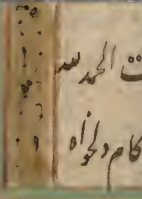 ت الحمد لله
کام دلخواه